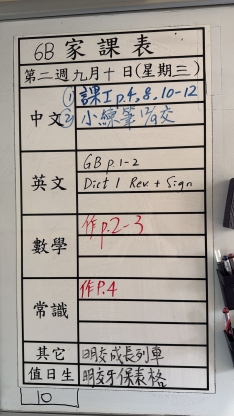 6B 家課表
第二週九月十日(星期三)
中文 ① 課I p.4, 8, 10-12
② 小練筆 12/9交
英文 GB p.1-2
Dict 1 Rev. + Sign
數學 作p.2-3
常識 作P.4
其它 明交成長列車
值日生 明交牙保表格
10